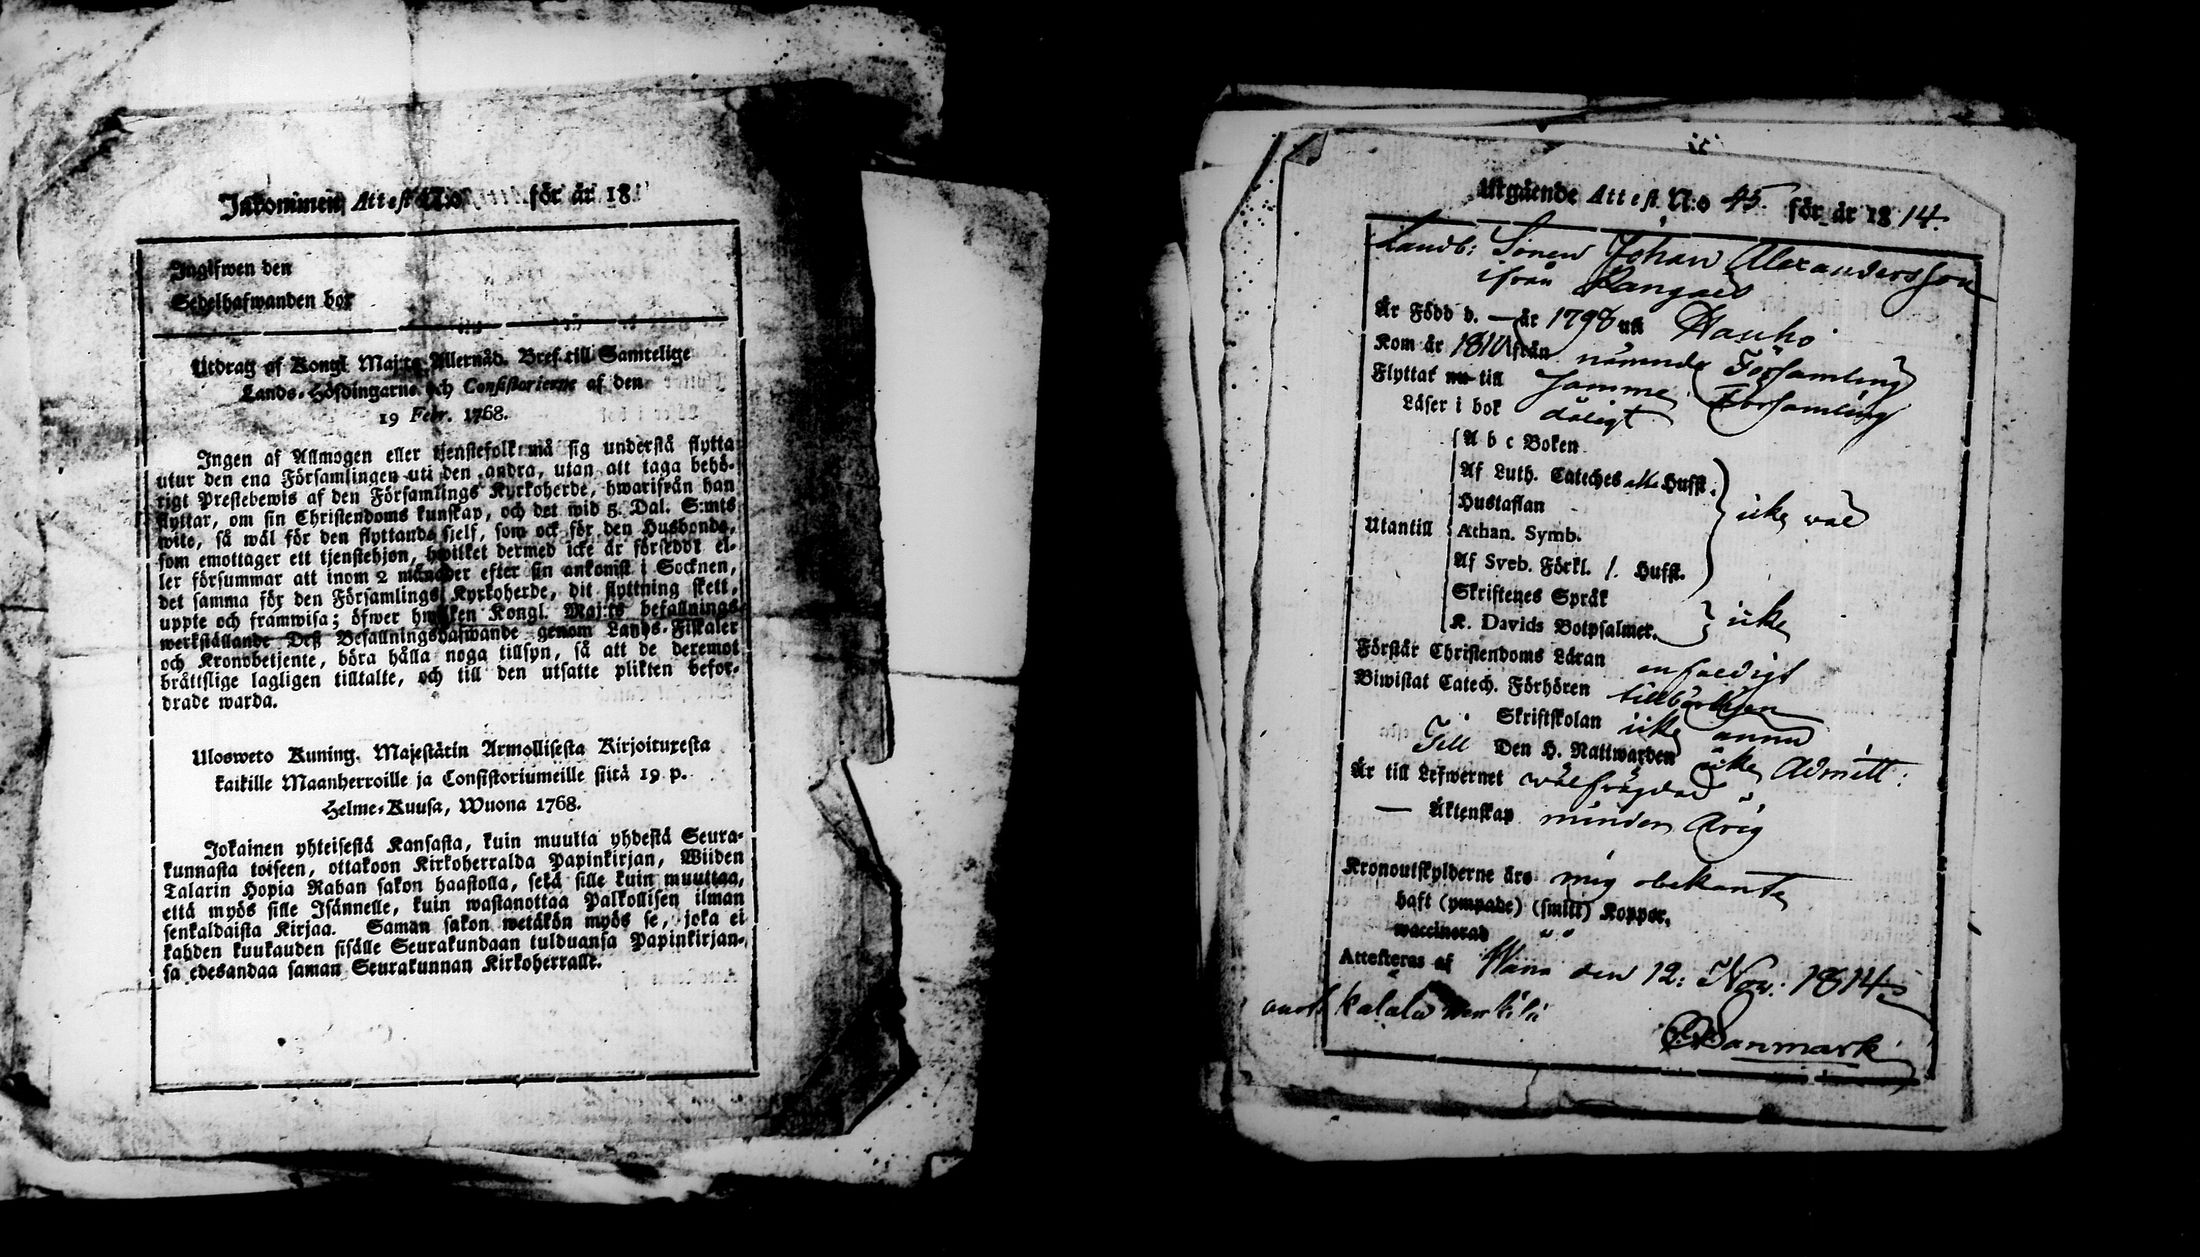 Inkommen Attest N:o för år 18
Ingifwen den
Sedelhafwanden bor
Utdrag af Kongl Maj:ts Allernåd. Bref till Samtelige
Lands-Höfdingarne och Consistorierne af den
19 Febr. 1768.
Ingen af Allmogen eller tjenstefolk må sig understå flytta
utur den ena Församlingen uti den andra, utan att taga behö-
rigt Prestebewis af den Församlings Kyrkoherde, hwarifrån han
flyttar, om sin Christendoms kunskap, och det wid 5. Dal. S:mts
wite, så wäl för den flyttande sjelf, som ock för den Husbonde,
som emottager ett tjenstehjon, hwilket dermed icke är försedt el-
ler försummar att inom 2 månader efter sin ankomst i Socknen,
det samma för den Församlings Kyrkoherde, dit flyttning skett,
uppte och framwisa; öfwer hwilken Kongl. Maj:ts befallnings
werkställande Deß Befallningshafwande genom Lands-Fiskaler
och Kronobetjente, böra hålla noga tillsyn, så att de deremot
bråttslige lagligen tilltalte, och till den utsatte plikten befor-
drade warda.
Ulosweto Kuning. Majestätin Armollisesta Kirjoituxesta
kaikille Maanherroille ja Consistoriumeille siitä 19 p.
Helme-Kuusa, Wuona 1768.
Jokainen yhteisestä Kansasta, kuin muutta yhdestä Seura-
kunnasta toiseen, ottakoon Kirkoherralda Papinkirjan, Wiiden
Talarin Hopia Rahan sakon haastolla, sekä sille kuin muuttaa,
että myös sille Isännelle, kuin wastanottaa Palkollisen ilman
senkaldaista Kirjaa. Saman sakon wetäkön myös se, joka ei
kahden kuukauden sisälle Seurakundaan tulduansa Papinkirjan-
sa edesandaa saman Seurakunnan Kirkoherralle.
Utgående Attest N:o 45. för år 1814.
Landb: Sonen Johan Alexandersson
ifrån
Är Född d. — år 1798 uti Hauho
Kom år 1810 från nämnde Församling
Flyttat nu till samma Församling
Läser i bok dåligt
A b c Boken
Af Luth. Cateches alla Hufst.
Hustaflan icke wäl
Utantill Athan. Symb.
Af Sveb. Förkl. 1. Hufst.
Skriftenes Språk
K. Davids Botpsalmer. icke
Förstår Christendoms Läran enfaldigt
Biwistat Catech. Förhören tillbörligen
Skriftskolan icke ännu
Till Den H. Nattwarden icke Admitt.
Är till Lefwernet wälfrägdad
— Äktenskap minder Årig
Kronoutskylderne äro mig obekante
haft (ympade) (smitt) Koppor.
waccinerad " "
Attesteras af Wånå den 12: Nov: 1814